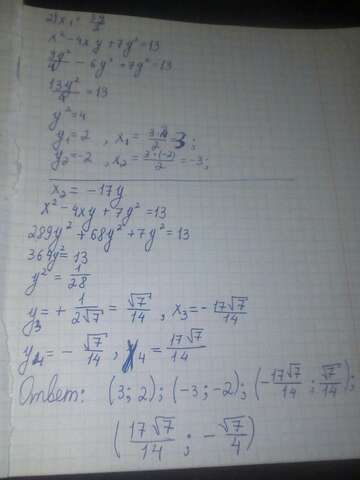 2) x₁ = 3y/2
x² - 4xy + 7y² = 13
9y²/4 - 6y² + 7y² = 13
13y²/4 = 13
y² = 4
y₁ = 2 , x₁ = 3·2/2 = 3 ;
y₂ = -2 , x₂ = 3·(-2)/2 = -3 ;
x₂ = -17y
x² - 4xy + 7y² = 13
289y² + 68y² + 7y² = 13
364y² = 13
y² = 1/28
y₃ = + 1/2√7 = √7/14 , x₃ = - 17√7/14
y₄ = - √7/14 , x₄ = 17√7/14
Ответ: (3 ; 2) ; (-3 ; -2) ; (- 17√7/14 ; √7/14) ;
(17√7/14 ; - √7/4)